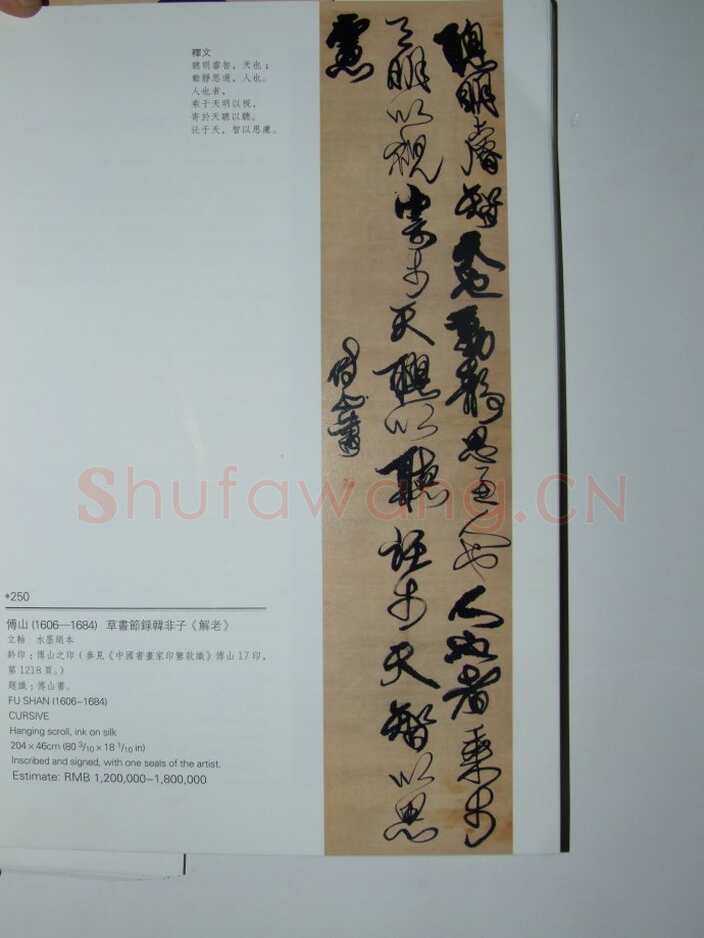 釋文
聰明睿智，天也；
動靜思通，人也。
人也者，
乘于天明以視，
寄於天聰以聽。
託于天，智以思慮。
聰明睿智天也動靜思通人也人也者乘於
天明以視寄於天聰以聽託於天智以思
慮
傅山書
Shufawang.CN
+250
傅山 (1606—1684) 草書節錄韓非子《解老》
立軸 水墨絹本
鈐印：傅山之印（參見《中國書畫家印鑒款識》傅山17印，
第1218頁。）
題識：傅山書。
FU SHAN (1606-1684)
CURSIVE
Hanging scroll, ink on silk
204 × 46cm (80 3/10 × 18 1/10 in)
Inscribed and signed, with one seals of the artist.
Estimate: RMB 1,200,000~1,800,000